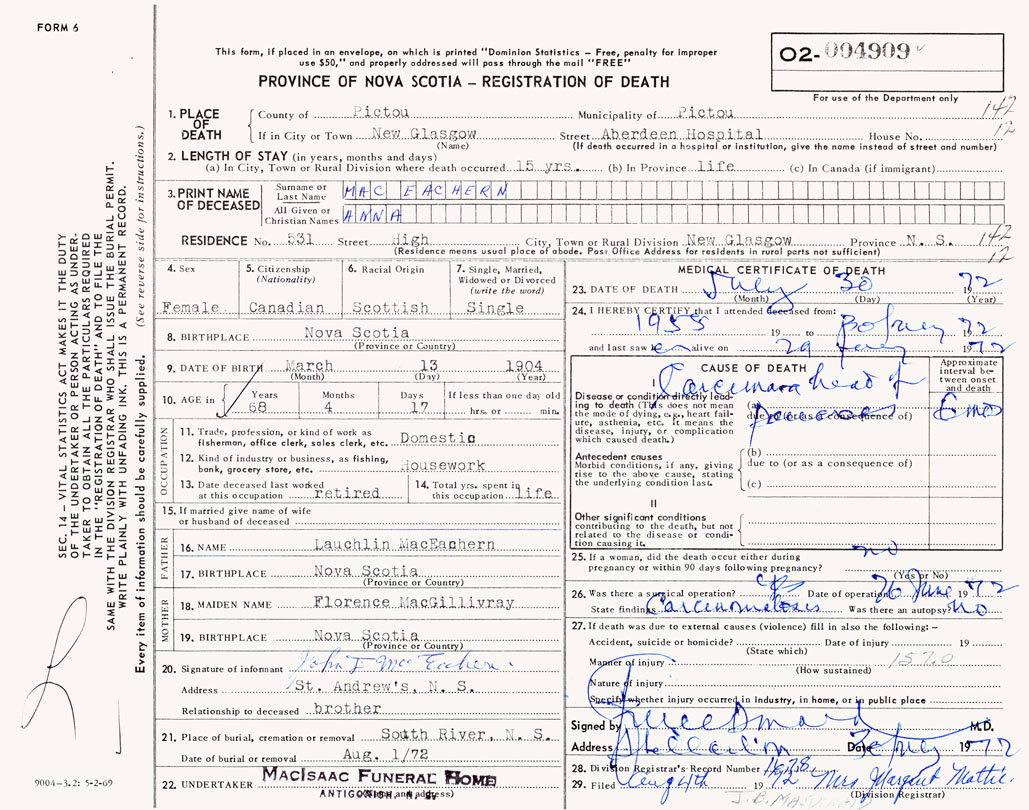 FORM 6
This form, if placed in an envelope, on which is printed "Dominion Statistics – Free, penalty for improper
use $50," and properly addressed will pass through the mail "FREE"
PROVINCE OF NOVA SCOTIA – REGISTRATION OF DEATH
02-004909
For use of the Department only
1. PLACE OF DEATH
County of Pictou Municipality of Pictou 142
12
If in City or Town New Glasgow Street Aberdeen Hospital House No.
(Name) (If death occurred in a hospital or institution, give the name instead of street and number)
2. LENGTH OF STAY (in years, months and days)
(a) In City, Town or Rural Division where death occurred 15 yrs. (b) In Province life (c) In Canada (if immigrant)
3. PRINT NAME OF DECEASED
Surname or Last Name MAC EACHERN
All Given or Christian Names ANNA
RESIDENCE No. 531 Street High City, Town or Rural Division New Glasgow Province N. S. 142
12
(Residence means usual place of abode. Post Office Address for residents in rural parts not sufficient)
4. Sex
Female
5. Citizenship (Nationality)
Canadian
6. Racial Origin
Scottish
7. Single, Married, Widowed or Divorced (write the word)
Single
8. BIRTHPLACE Nova Scotia
(Province or Country)
9. DATE OF BIRTH March 13 1904
(Month) (Day) (Year)
10. AGE in Years Months Days If less than one day old
68 4 17 hrs. or min.
OCCUPATION
11. Trade, profession, or kind of work as
fisherman, office clerk, sales clerk, etc. Domestic
12. Kind of industry or business, as fishing,
bank, grocery store, etc. Housework
13. Date deceased last worked
at this occupation retired
14. Total yrs. spent in
this occupation life
15. If married give name of wife
or husband of deceased
FATHER
16. NAME Lauchlin MacEachern
17. BIRTHPLACE Nova Scotia
(Province or Country)
MOTHER
18. MAIDEN NAME Florence MacGillivray
19. BIRTHPLACE Nova Scotia
(Province or Country)
20. Signature of informant John F Mac Eachern
Address St. Andrew's, N. S.
Relationship to deceased brother
21. Place of burial, cremation or removal South River, N. S.
Date of burial or removal Aug. 1/72
22. UNDERTAKER MACISAAC FUNERAL HOME
ANTIGONISH, N. S.
MEDICAL CERTIFICATE OF DEATH
23. DATE OF DEATH July 30 1972
(Month) (Day) (Year)
24. I HEREBY CERTIFY that I attended deceased from:
1955 19 to 30 July 72
and last saw er alive on 29 July 1972
CAUSE OF DEATH
Approximate interval between onset and death
I
Disease or condition directly leading to death (This does not mean
the mode of dying, e.g., heart failure, asthenia, etc. It means the
disease, injury, or complication
which caused death.)
(a) Carcinoma head of
pancreas 6 mo
due to (or as a consequence of)
Antecedent causes
Morbid conditions, if any, giving
rise to the above cause, stating
the underlying condition last.
(b)
due to (or as a consequence of)
(c)
II
Other significant conditions
contributing to the death, but not
related to the disease or condition causing it.
25. If a woman, did the death occur either during
pregnancy or within 90 days following pregnancy? no
(Yes or No)
26. Was there a surgical operation? yes Date of operation 20 June 1972
State findings Carcinomatosis Was there an autopsy? no
27. If death was due to external causes (violence) fill in also the following: –
Accident, suicide or homicide? Date of injury 19
(State which)
Manner of injury 157.0
(How sustained)
Nature of injury
Specify whether injury occurred in Industry, in home, or in public place
Signed by M.D.
Address Date 30 July 1972
28. Division Registrar's Record Number
29. Filed Aug 4th 1972 Mrs Margaret Mattie
(Division Registrar)
SEC. 14 – VITAL STATISTICS ACT MAKES IT THE DUTY
OF THE UNDERTAKER OR PERSON ACTING AS UNDERTAKER TO OBTAIN ALL THE PARTICULARS REQUIRED
IN THE "REGISTRATION OF DEATH" AND TO FILE THE
SAME WITH THE DIVISION REGISTRAR WHO SHALL ISSUE THE BURIAL PERMIT.
WRITE PLAINLY WITH UNFADING INK. THIS IS A PERMANENT RECORD.
Every item of information should be carefully supplied. (See reverse side for instructions.)
9004-3.2: 5-2-69